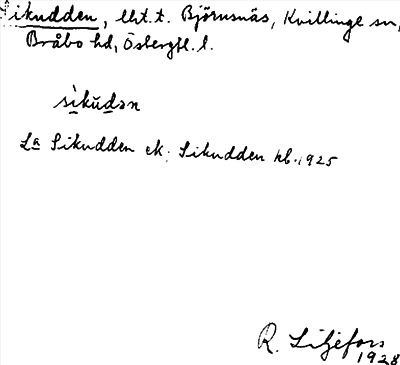 Sikudden, lht. t. Björnsnäs, Kvillinge sn,
Bråbo hd, Östergtl. l.
sìkŭdən
La Sikudden ek. Sikudden kb. 1925
R. Liljefors
1928